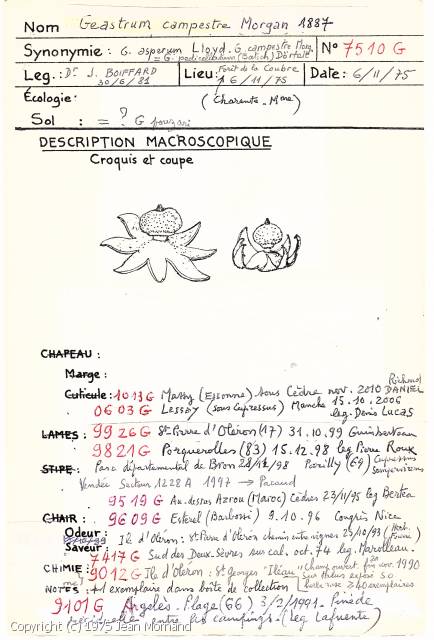 Nom Geastrum campestre Morgan 1887
Synonymie: G. asperum Lloyd. G. campestre Morg
= G. pedicellatum (Batsch) Dörfelt
N° 7510 G
Leg.: Dr J. BOIFFARD
30/6/81
Lieu: Forêt de la Coubre
6/11/75
Date: 6/11/75
Écologie:
(Charente-Mme)
Sol : = ? G
DESCRIPTION MACROSCOPIQUE
Croquis et coupe
CHAPEAU :
Marge :
Cuticule : 1013 G Massy (Essonne) sous Cèdre nov. 2010 Richard DANIEL
0603 G Lessay (sous Cupressus) Manche 15.10.2006
leg. Denis LUCAS
LAMES : 9926 G St Pierre d'Oléron (17) 31.10.99 Guinberteau
9821 G Porquerolles (83) 15.12.98 leg Pierre Roux
STIPE : Parc départemental de Bron 28/11/98 Parilly (69) Cupressus sempervirens
Vendée Secteur 1228 A 1997 → Pacaud
9519 G Au dessus Azrou (Maroc) Cèdres 23/11/95 leg Bertéa
CHAIR : 9609 G Esterel (Barbossi) 9.10.96 Congrès Nice
Odeur : Ile d'Oléron : St Pierre d'Oléron chemin entre vignes 25/10/93
Saveur :
7417 G Sud des Deux-Sèvres sur cal. oct. 74 leg Marolleau.
CHIMIE : 9012 G Ile d'Oléron : St Georges fin nov. 1990
NOTES : +1 exemplaire dans boîte de collection
9101 G Argelès. Plage (66) 3/2/1991. Pinède
résiduelle entre les campings. (leg Lafuente)
Copyright (c) 1975 Jean Mornand